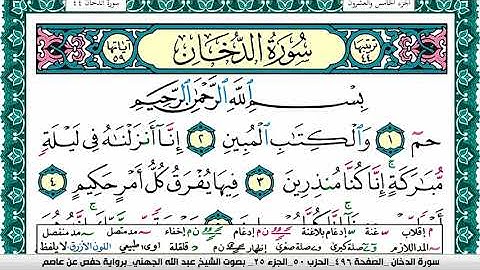 الجزء الخامس والعشرون
سورة الدخان ٤٤
ترتيبها ٤٤
سُورَةُ الدُّخَان
آياتها ٥٩
بِسْمِ اللَّهِ الرَّحْمَٰنِ الرَّحِيمِ
حمٓ ١ وَالْكِتَابِ الْمُبِينِ ٢ إِنَّا أَنزَلْنَاهُ فِي لَيْلَةٍ
مُّبَارَكَةٍ ۚ إِنَّا كُنَّا مُنذِرِينَ ٣ فِيهَا يُفْرَقُ كُلُّ أَمْرٍ حَكِيمٍ ٤
م إقلاب غنة إدغام بلاغنة ن م إدغام ن إخفاء مد متصل مد منفصل
المد اللازم صلة كبرى وصلة صغرى إظهار ن م قلقلة ا و ى طبيعي اللون الأزرق لا يلفظ
سورة الدخان_الصفحة ٤٩٦_الحزب ٥٠_الجزء ٢٥_ بصوت الشيخ عبد الله الجهني_برواية حفص عن عاصم